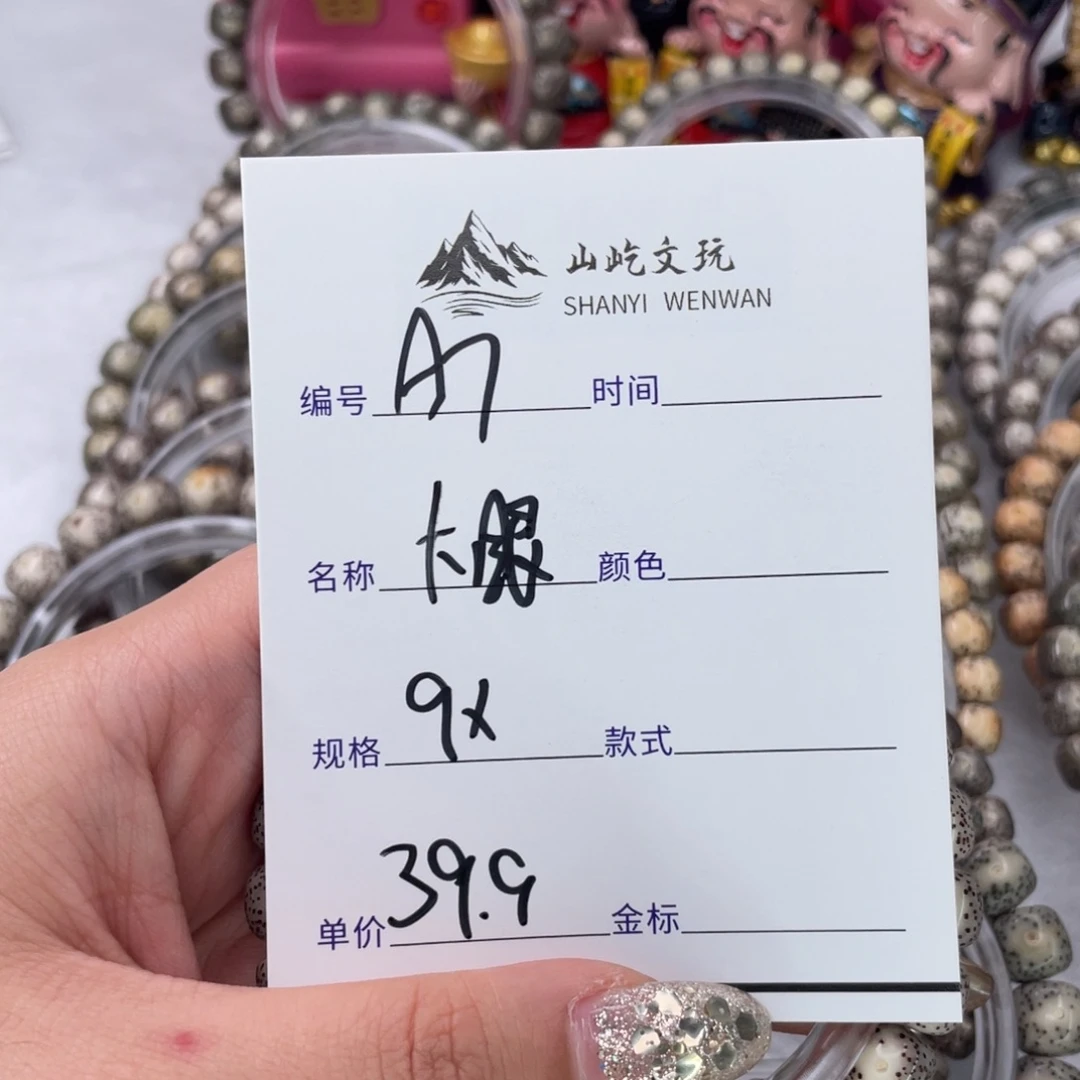 山屹文玩
SHANYI WENWAN
编号 A7 时间
名称 卡 颜色
规格 9x 款式
单价 39.9 金标